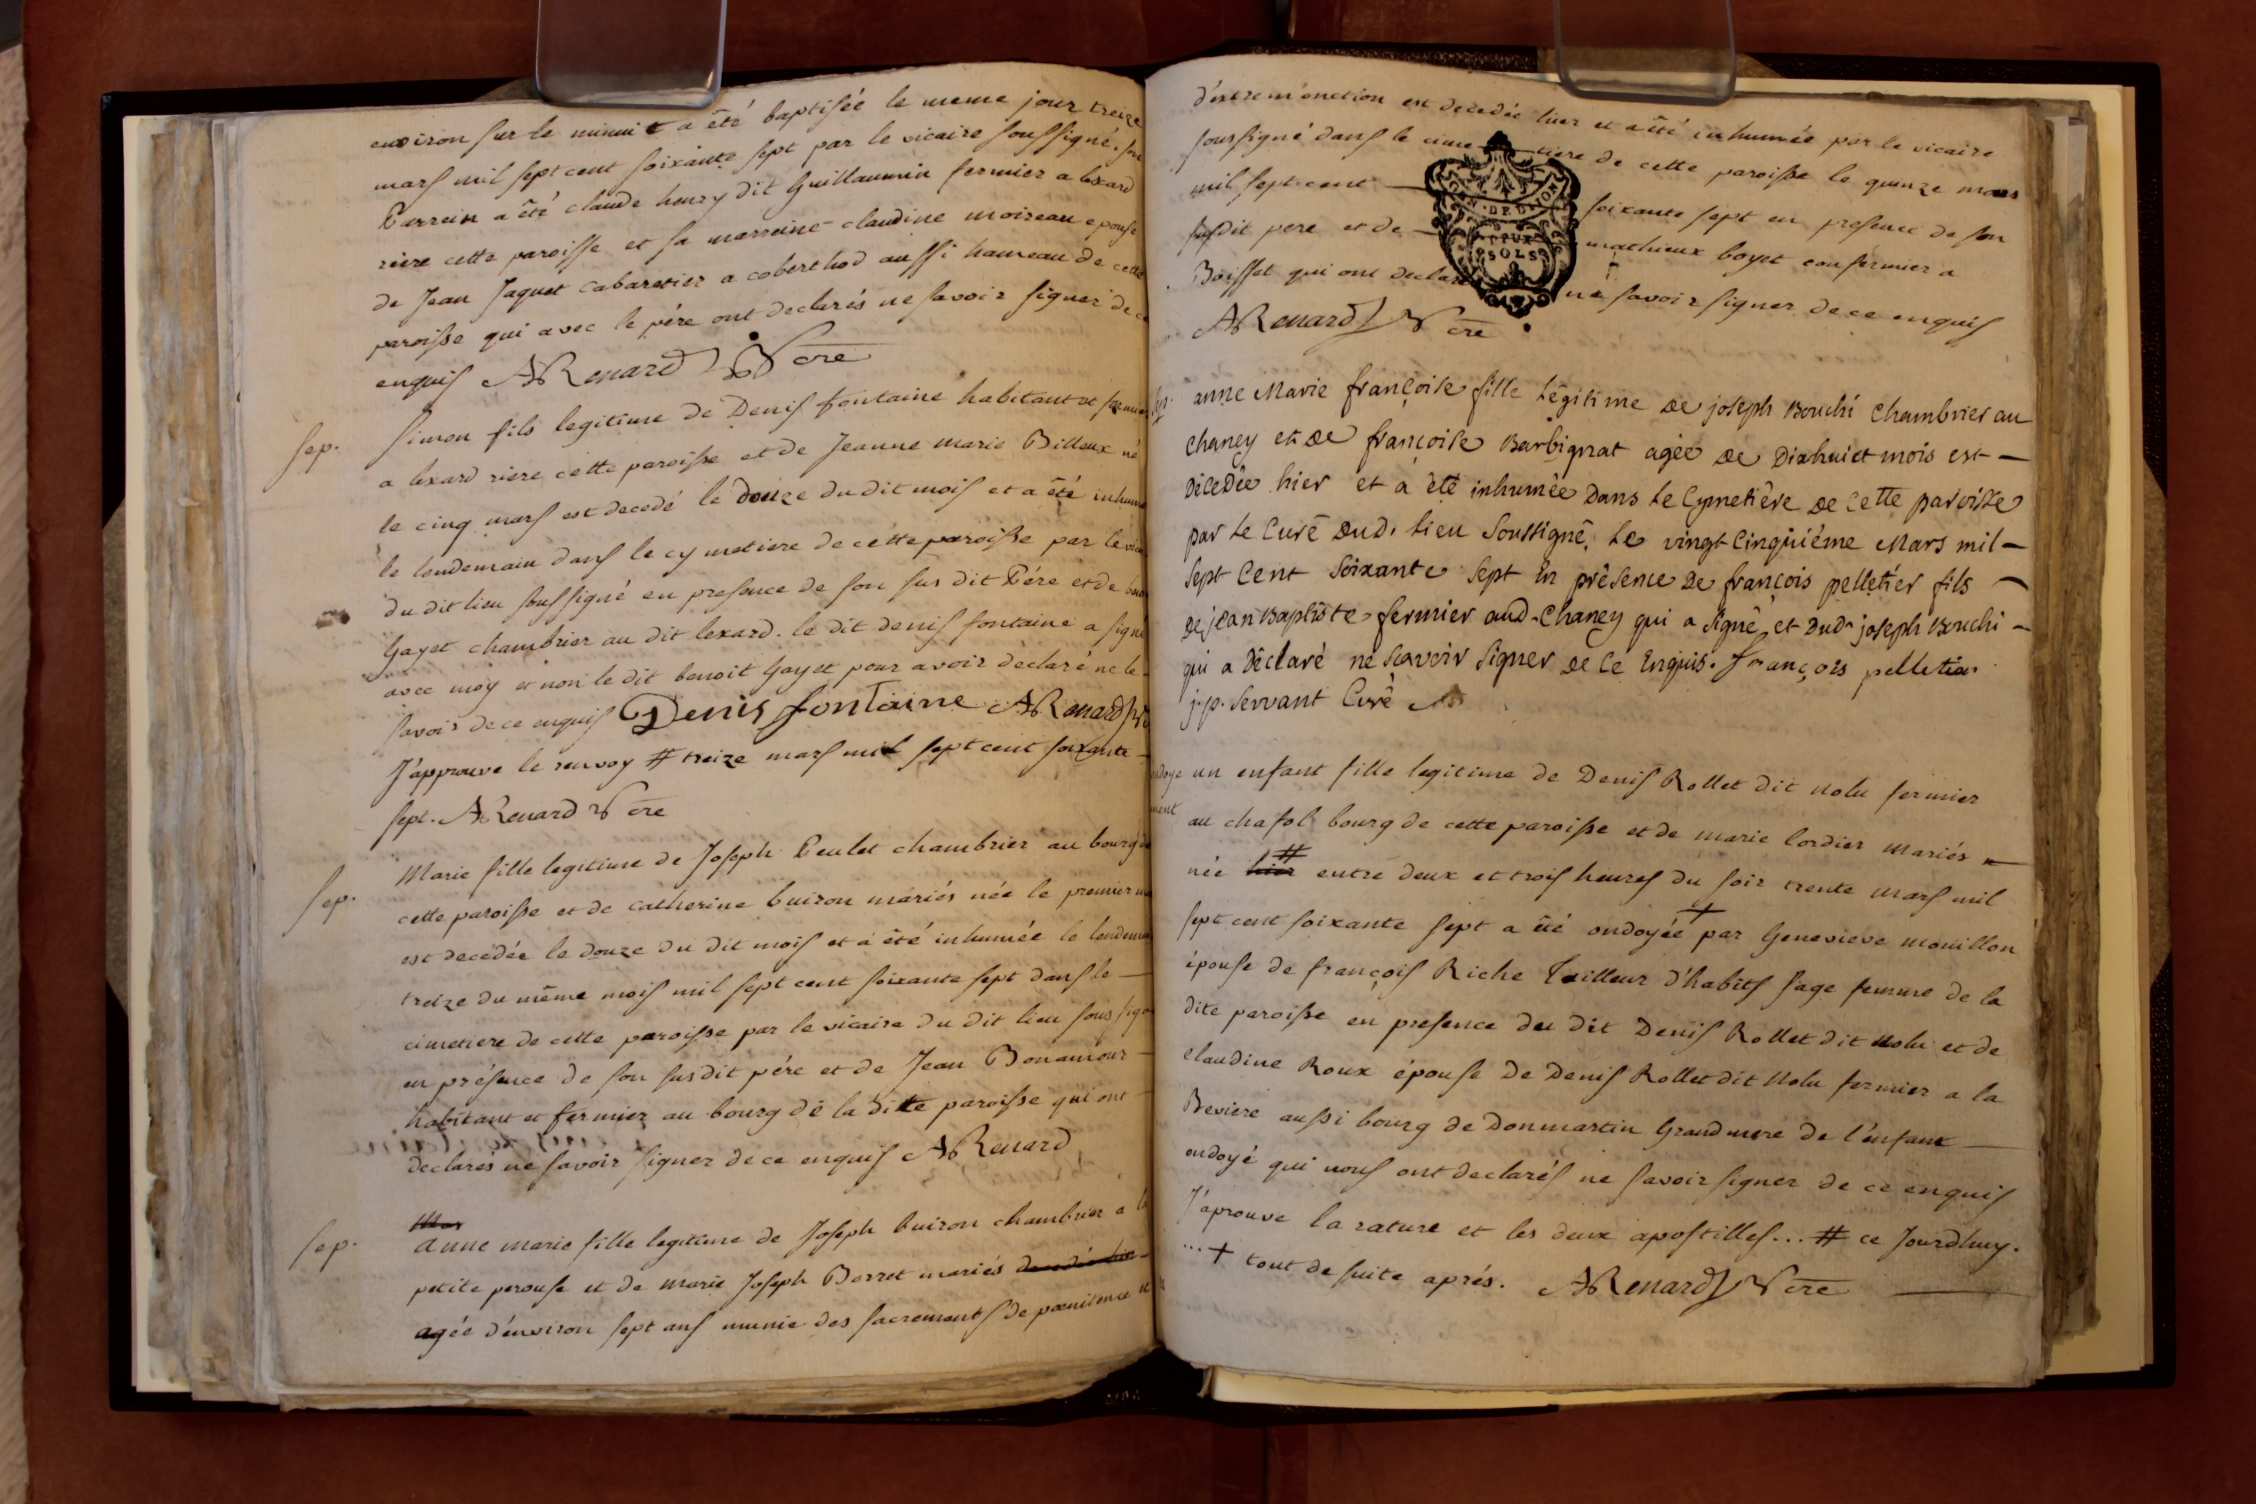 environ sur le minuit a êté baptisée le meme jour treize
mars mil sept cent soixante sept par le vicaire soussigné. son
Parrein a êté claude henry dit Guillaumin fermier a lexard
riere cette paroisse et sa marreine claudine moireau epouse
de Jean Jaquet cabaretier a coberthod aussi hameau de cette
paroisse qui avec le père ont declarés ne savoir signer de ce
enquis ARenard Vcre
sep. Simon fils legitime de Denis fontaine habitant et fermier
a lexard riere cette paroisse et de Jeanne marie Billoux né
le cinq mars est decedé le douze du dit mois et a êté inhumé
le lendemain dans le cymetiere de cette paroisse par le vicaire
du dit lieu soussigné en presence de son sus dit Pére et de benoit
Gayet chambrier au dit lexard. le dit denis fontaine a signé
avec moy et non le dit benoit Gayet pour avoir declaré ne le
savoir de ce enquis Denis fontaine ARenard Vcre
J'approuve le renvoy # treize mars mil sept cent soixante
sept. ARenard Vcre
sep. Marie fille legitime de Joseph Peulet chambrier au bourg de
cette paroisse et de catherine buiron mariés née le premier mars
est decedée le douze du dit mois et a été inhumée le lendemain
treize du même mois mil sept cent soixante sept dans le
cimetiere de cette paroisse par le vicaire du dit lieu sous signé
en présence de son susdit pére et de Jean Bonamour
habitant et fermier au bourg de la ditte paroisse qui ont
declarés ne savoir signer de ce enquis ARenard
Mar
sep. anne marie fille legitime de Joseph buiron chambrier a la
petite perouse et de marie Joseph Berret mariés decedée hier
agée d'environ sept ans munie des sacrements de pœnitence et
d'extrem'onction est decedée hier et a êté inhumée par le vicaire
soussigné dans le cimetiere de cette paroisse le quinze mars
mil sept cent soixante sept en presence de son
susdit pere et de mathieux boyet confermier a
Boisset qui ont declaré ne savoir signer de ce enquis
GEN. DE LYON
DEUX
SOLS
ARenard Vcre
sep. anne Marie françoise fille Légitime de joseph Bouchi Chambrier au
Chaney et de françoise Barbignat agée de Dixhuict mois est
Décedée hier et a été inhumée Dans Le Cymetière de Cette paroisse
par Le Curé dud. lieu Soussigné, Le vingt Cinquiéme Mars mil
Sept Cent Soixante Sept En présence De françois pelletier fils
De jean Baptiste fermier aud. Chaney qui a signé, et Dud. joseph Bouchi
qui a Déclaré ne Scavoir Signer de Ce Enquis. françois pelletier
j. p. Servant Curé
ondoye un enfant fille legitime de Denis Rollet dit nolu fermier
ment au chafol bourg de cette paroisse et de marie lordier mariés
née hier # entre deux et trois heures du soir trente mars mil
sept cent soixante sept a êté ondoyée + par Genevieve mouillon
épouse de françois Riche Tailleur d'habits sage femme de la
dite paroisse en presence du dit Denis Rollet dit Nolu et de
claudine Roux épouse de Denis Rollet dit Nolu fermier a la
Beviere aussi bourg de Donmartin Grand mere de l'enfant
ondoyé qui nous ont declarés ne savoir signer de ce enquis
J'aprouve la rature et les deux apostilles... # ce Jourd'huy.
...+ tout de suite aprés. ARenard Vcre